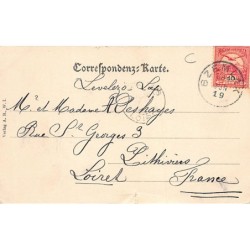 C
Correspondenz-Karte.
Levelező-Lap
Mr et Madame Deshayes
Rue St Georges 3
Pithiviers
Loiret France
Verlag A. R., W. I.